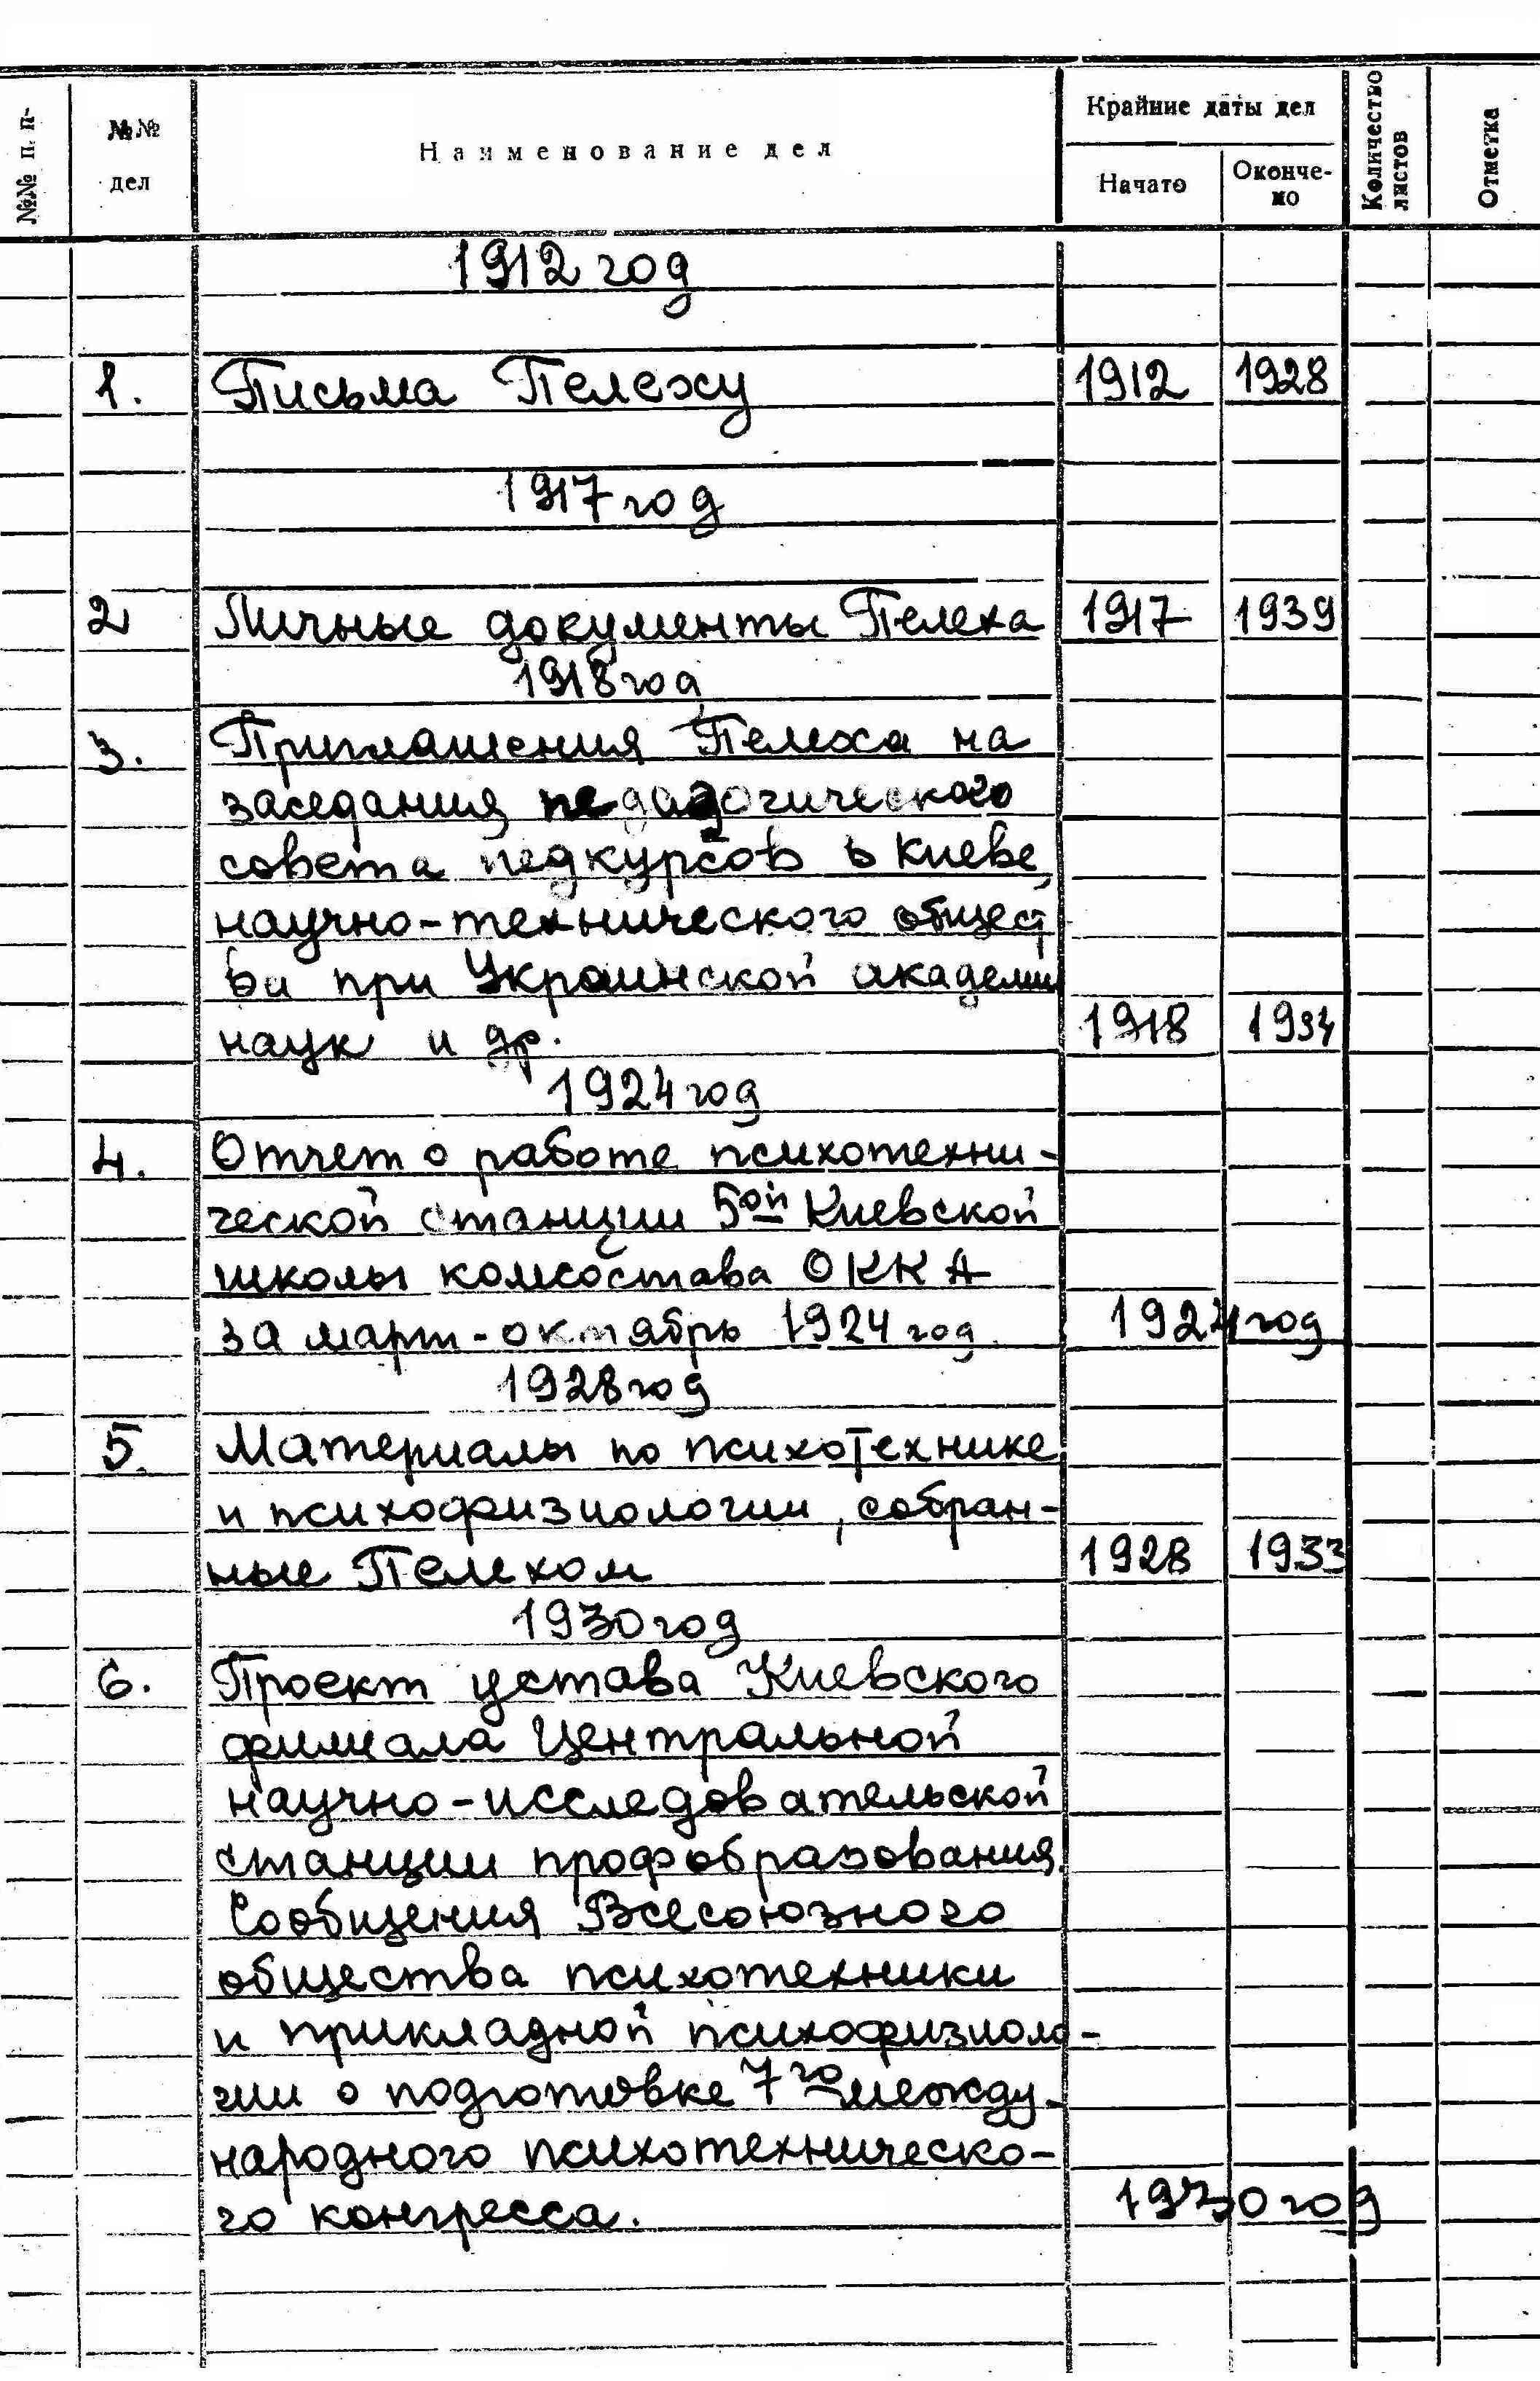 №№ п. п-
№№ дел
Наименование дел
Крайние даты дел
Начато
Окончено
Количество листов
Отметка
1912 год
1. Письма Пелеху 1912 1928
1917 год
2 Личные документы Пелеха 1917 1939
1918 год
3. Приглашения Пелеха на
заседания педагогического
совета педкурсов в Киеве,
научно-технического общест
ва при Украинской академии
наук и др. 1918 1934
1924 год
4. Отчет о работе психотехни-
ческой станции 5ой Киевской
школы комсостава ОККА
за март-октябрь 1924 год. 1924 год
1928 год
5. Материалы по психотехнике
и психофизиологии, собран-
ные Пелехом 1928 1933
1930 год
6. Проект устава Киевского
филиала Центральной
научно-исследовательской
станции профобразования.
Сообщения Всесоюзного
общества психотехники
и прикладной психофизиоло-
гии о подготовке 7го между-
народного психотехническо-
го конгресса. 1930 год